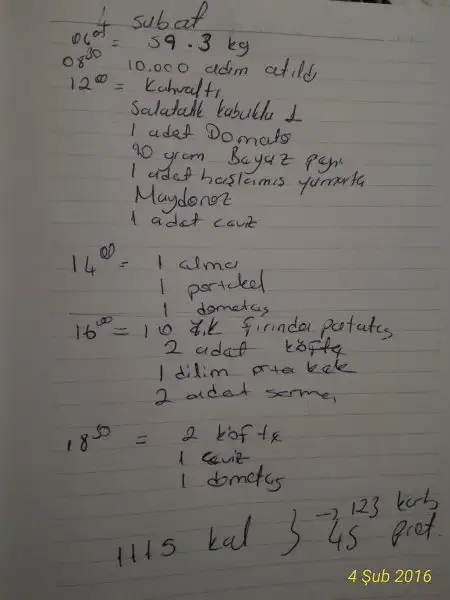 4 Subat
06 05 = 59.3 kg
08 30 10.000 adım atıldı
12 00 = Kahvaltı
Salatalık kabuklu 1
1 adet Domates
90 gram Bayaz peyni
1 adet haşlamış yumurta
Maydonoz
1 adet ceviz
14 00 = 1 elma
1 portakal
1 domates
16 00 = 10 fırında patates
2 adet köfte
1 dilim orta kek
2 adet sarma,
18 30 = 2 köfte
1 ceviz
1 domates
1115 kal } → 123 karb
45 prot.
4 Şub 2016